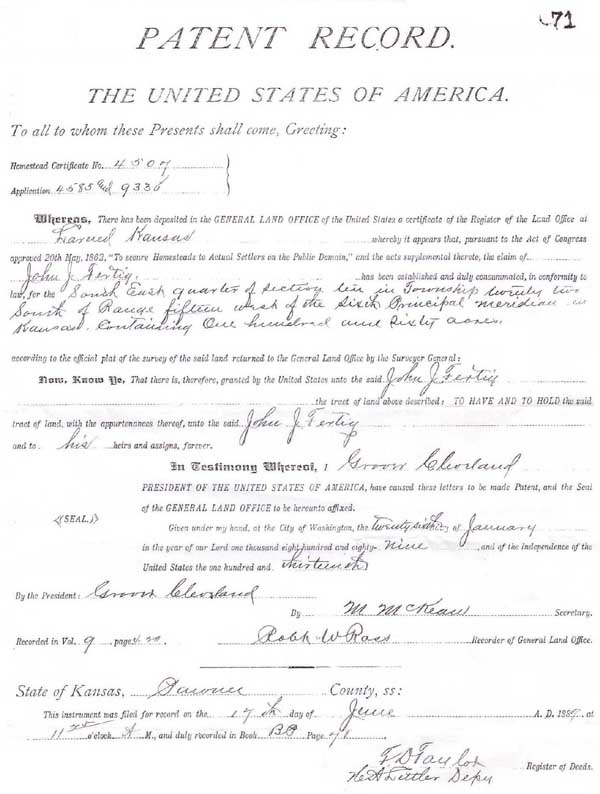 71
PATENT RECORD.
THE UNITED STATES OF AMERICA.
To all to whom these Presents shall come, Greeting:
Homestead Certificate No. 4507
Application 4585 9336
Whereas, There has been deposited in the GENERAL LAND OFFICE of the United States a certificate of the Register of the Land Office at
Larned Kansas whereby it appears that, pursuant to the Act of Congress
approved 20th May, 1862, "To secure Homesteads to Actual Settlers on the Public Domain," and the acts supplemental thereto, the claim of
John J. Fertig. has been established and duly consummated, in conformity to
law, for the South East quarter of section ten in Township twenty two
South of Range fifteen west of the Sixth Principal meridian in
Kansas. Containing One hundred and Sixty acres.
according to the official plat of the survey of the said land returned to the General Land Office by the Surveyor General:
Now, Know Ye, That there is, therefore, granted by the United States unto the said John J Fertig
the tract of land above described: TO HAVE AND TO HOLD the said
tract of land, with the appurtenances thereof, unto the said John J Fertig
and to his heirs and assigns, forever.
In Testimony Whereof, I Grover Cleveland
PRESIDENT OF THE UNITED STATES OF AMERICA, have caused these letters to be made Patent, and the Seal
of the GENERAL LAND OFFICE to be hereunto affixed.
(SEAL.)
Given under my hand, at the City of Washington, the twenty sixth day of January
in the year of our Lord one thousand eight hundred and eighty- nine, and of the independence of the
United States the one hundred and thirteenth
By the President: Grover Cleveland
By M McKean Secretary.
Recorded in Vol. 9 page Robt W Ross Recorder of General Land Office.
State of Kansas, Pawnee County, ss:
This instrument was filed for record on the 17th day of June A. D. 1889, at
11 o'clock A M., and duly recorded in Book BB Page 71
F D Taylor Register of Deeds.
Depy